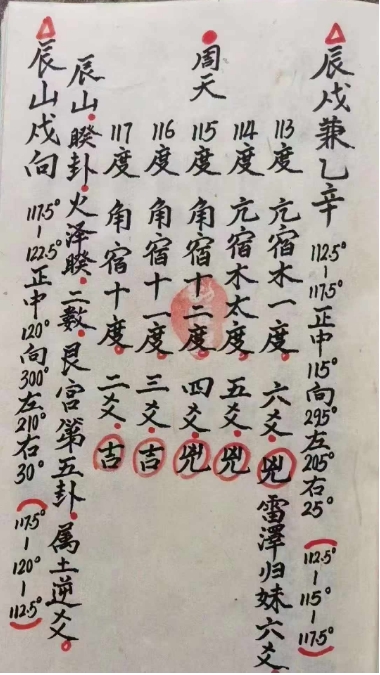 辰戌兼乙辛 112.5°-117.5°正中115°向295°左205°右25°(112.5°-115°-117.5°)
周天
113度 亢宿木一度 六爻 兇 雷澤归妹六爻
114度 亢宿木太度 五爻 兇
115度 角宿十二度 四爻 兇
116度 角宿十一度 三爻 吉
117度 角宿十度 二爻 吉
辰山 睽卦 火泽睽 二数 艮宫第五卦 属土逆爻
辰山戌向 117.5°-122.5°正中120°向300°左210°右30°(117.5°-120°-112.5°)